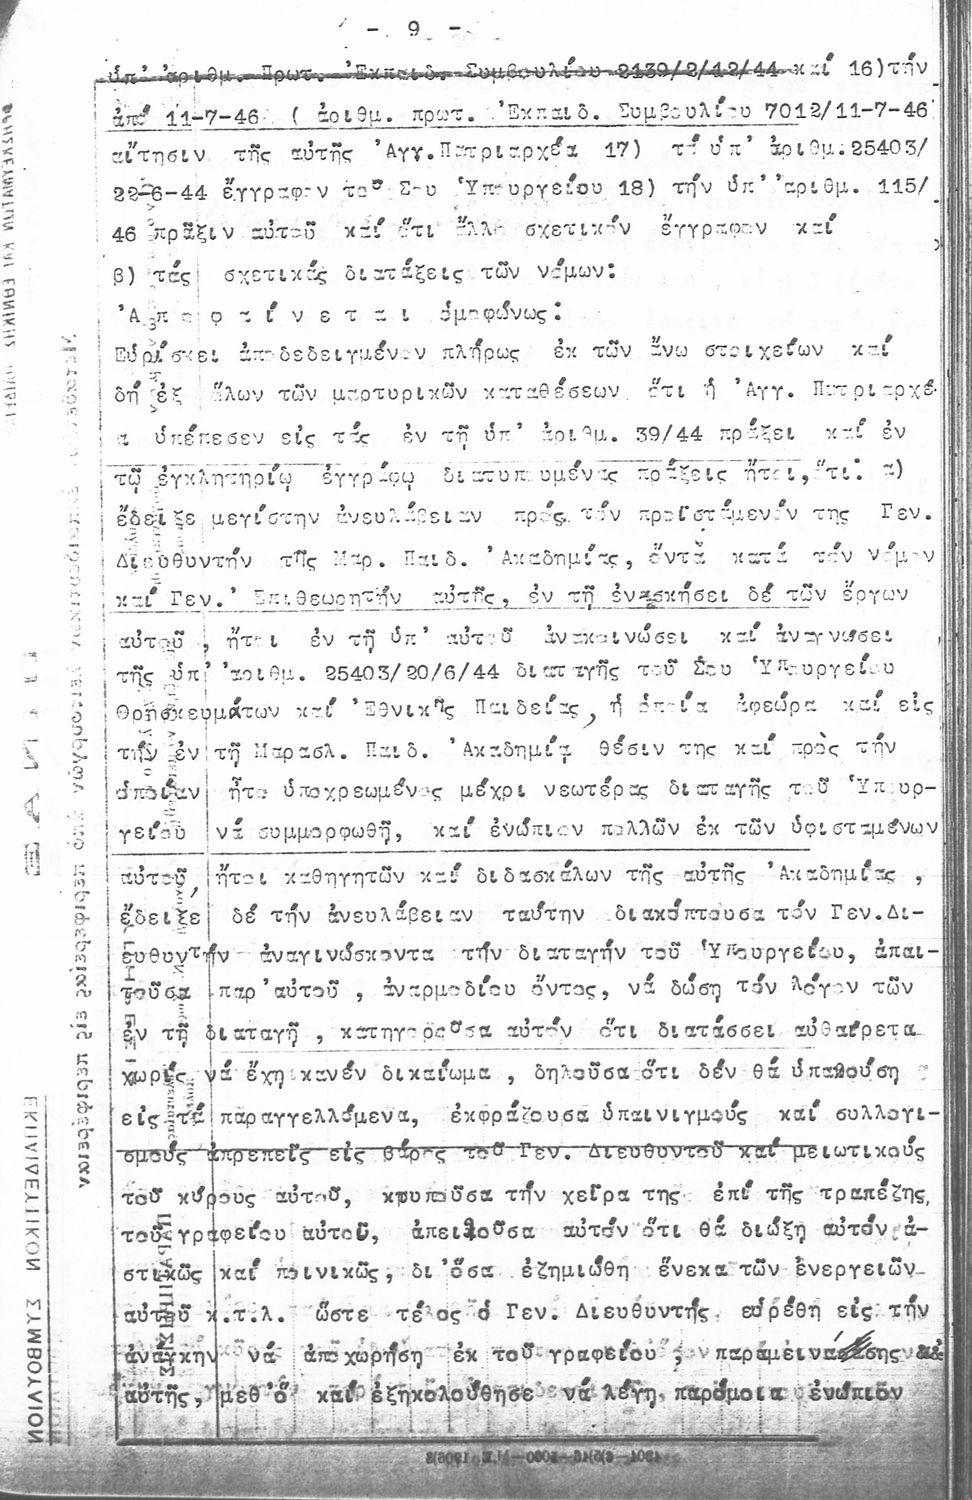 - 9 -
ὑπ' ἀριθμ. Πρωτ. Ἐκπαιδ. Συμβουλίου 2139/2/12/44 καί 16)τήν
ἀπό 11-7-46 ( ἀριθμ. πρωτ. Ἐκπαιδ. Συμβουλίου 7012/11-7-46
αἴτησιν τῆς αὐτῆς Ἀγγ.Πατριαρχέα 17) τό ὑπ' ἀριθμ.25403/
22-6-44 ἔγγραφον τοῦ Σου Ὑπουργείου 18) τήν ὑπ' ἀριθμ. 115/
46 πρᾶξιν αὐτοῦ καί ὅτι ἄλλο σχετικόν ἔγγραφον καί
β) τάς σχετικάς διατάξεις τῶν νόμων:
Ἀ π ο φ α ί ν ε τ α ι ὁμοφώνως:
Εὑρίσκει ἀποδεδειγμένον πλήρως ἐκ τῶν ἄνω στοιχείων καί
δή ἐξ ὅλων τῶν μαρτυρικῶν καταθέσεων ὅτι ἡ Ἀγγ. Πατριαρχέ-
α ὑπέπεσεν εἰς τάς ἐν τῇ ὑπ' ἀριθμ. 39/44 πράξει καί ἐν
τῷ ἐγκλητηρίῳ ἐγγράφῳ διατυπουμένας πράξεις ἤτοι,ὅτι: α)
ἔδειξε μεγίστην ἀνευλάβειαν πρός τόν προϊστάμενόν της Γεν.
Διευθυντήν τῆς Μαρ. Παιδ. Ἀκαδημίας, ὄντα κατά τόν νόμον
καί Γεν. Ἐπιθεωρητήν αὐτῆς, ἐν τῇ ἐνασκήσει δέ τῶν ἔργων
αὐτοῦ , ἤτοι ἐν τῇ ὑπ' αὐτοῦ ἀνακοινώσει καί ἀναγνώσει
τῆς ὑπ' ἀριθμ. 25403/20/6/44 διαταγῆς τοῦ Σου Ὑπουργείου
Θρησκευμάτων καί Ἐθνικῆς Παιδείας, ἡ ὁποία ἀφεώρα καί εἰς
τήν ἐν τῇ Μαρασλ. Παιδ. Ἀκαδημίᾳ θέσιν της καί πρὸς τήν
ὁποίαν ἦτο ὑποχρεωμένος μέχρι νεωτέρας διαταγῆς τοῦ Ὑπουρ-
γείου νά συμμορφωθῇ, καί ἐνώπιον πολλῶν ἐκ τῶν ὑφισταμένων
αὐτοῦ, ἤτοι καθηγητῶν καί διδασκάλων τῆς αὐτῆς Ἀκαδημίας ,
ἔδειξε δέ τήν ἀνευλάβειαν ταύτην διακόπτουσα τόν Γεν.Δι-
ευθυντήν ἀναγινώσκοντα τήν διαταγήν τοῦ Ὑπουργείου, ἀπαι-
τοῦσα παρ'αὐτοῦ , ἀναρμοδίου ὄντος, νά δώσῃ τόν λόγον τῶν
ἐν τῇ διαταγῇ , κατηγοροῦσα αὐτόν ὅτι διατάσσει αὐθαίρετα
χωρίς νά ἔχῃ κανέν δικαίωμα , δηλοῦσα ὅτι δέν θά ὑπακούσῃ
εἰς τά παραγγελλόμενα, ἐκφράζουσα ὑπαινιγμούς καί συλλογι-
σμούς ἀπρεπεῖς εἰς βάρος τοῦ Γεν. Διευθυντοῦ καί μειωτικούς
τοῦ κύρους αὐτοῦ, κτυποῦσα τήν χεῖρα της ἐπί τῆς τραπέζης,
τοῦ γραφείου αὐτοῦ, ἀπειλοῦσα αὐτόν ὅτι θά διώξῃ αὐτόν ἀ-
στικῶς καί ποινικῶς, δι'ὅσα ἐζημιώθη ἕνεκα τῶν ἐνεργειῶν
αὐτοῦ κ.τ.λ. ὥστε τέλος ὁ Γεν. Διευθυντής εὑρέθη εἰς τήν
ἀνάγκην νά ἀποχωρήσῃ ἐκ τοῦ γραφείου , παραμεινάσης
αὐτῆς, μεθ'ὅ καί ἐξηκολούθησε νά λέγῃ παρόμοια ἐνώπιον
ΕΚΠΑΙΔΕΥΤΙΚΟΝ ΣΥΜΒΟΥΛΙΟΝ